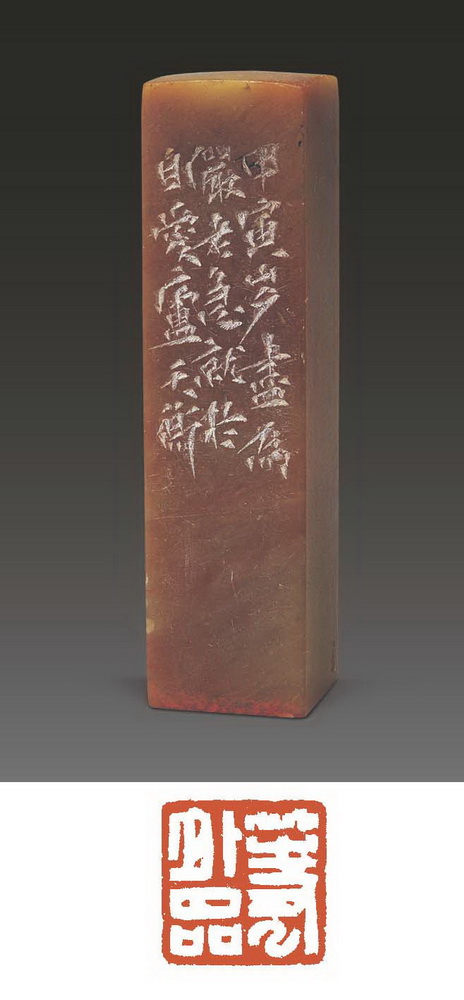 甲寅岁盡為
嚴老急就於
自愛廬天衡
外品